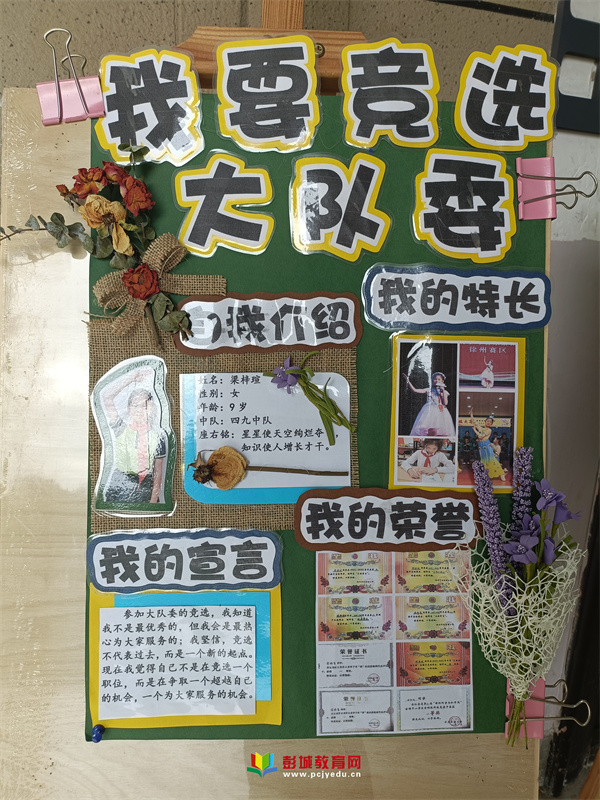 我要竞选
大队委
自我介绍
我的特长
姓名：梁梓瑄
性别：女
年龄：9岁
中队：四九中队
座右铭：星星使天空绚烂夺
知识使人增长才干。
徐州赛区
我的荣誉
荣誉证书
我的宣言
参加大队委的竞选，我知道
我不是最优秀的，但我会是最热
心为大家服务的；我坚信，竞选
不代表过去，而是一个新的起点。
现在我觉得自己不是在竞选一个
职位，而是在争取一个超越自己
的机会，一个为大家服务的机会。
彭城教育网
www.pcjyedu.cn